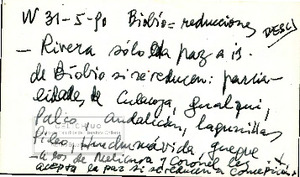 N 31-5-90 Biobío = reducciones
DESC
- Rivera sólo da paz a is.
de Biobío si se reducen: parcia-
lidades de Culacoya, Gualqui,
Palco, Andalicán, Lagunillas
Pileo, Huechumávida, gueque
- a los de Melirupu y Coronel les
acepta la paz si se reducen a Concepción